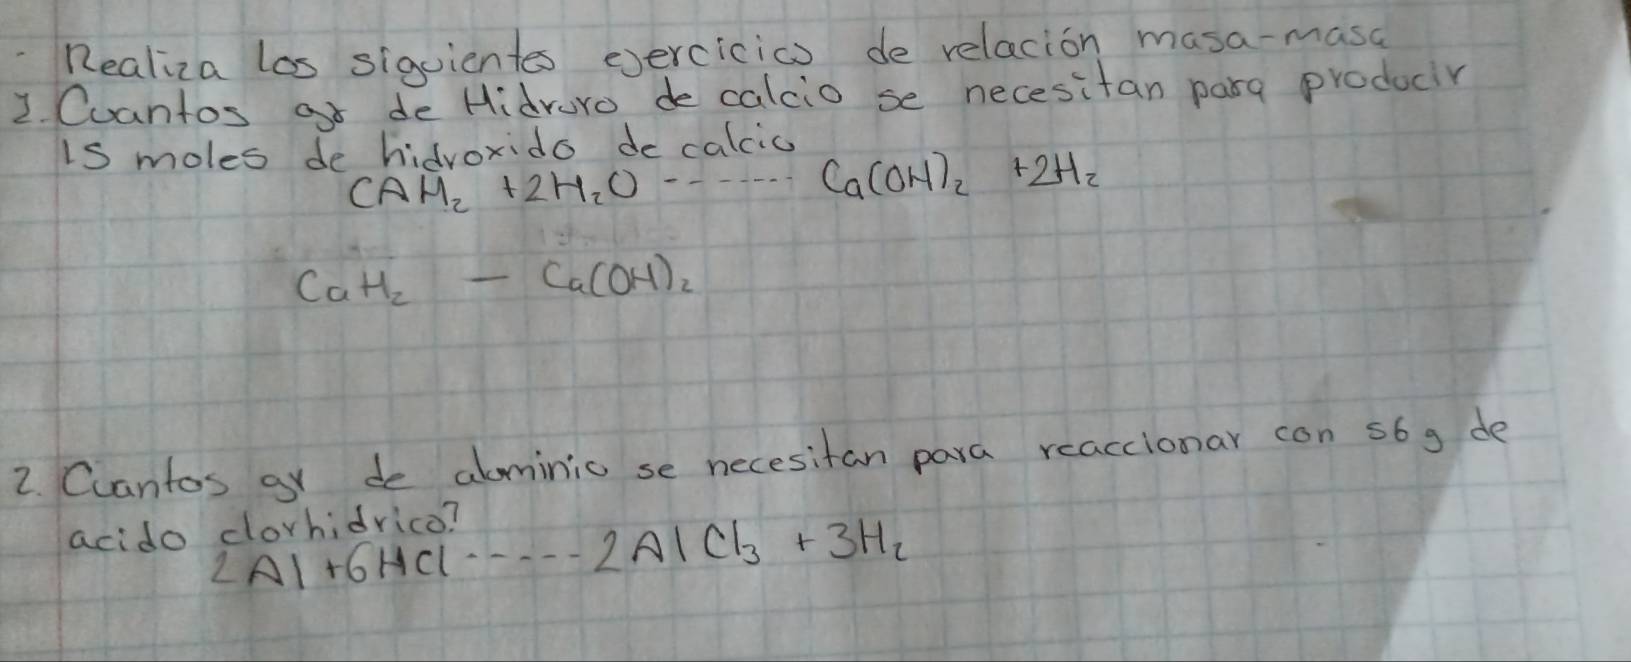 - Realiza los siguientes ejercicios de relación masa-masa
1. Cuantos gr de Hidruro de calcio se necesitan para producir
15 moles de hidroxido de calcio
CAH₂ +2H₂O ------- Ca(OH)₂ +2H₂
CaH₂ — Ca(OH)₂
2. Cuantos gr de aluminio se necesitan para reaccionar con 56 g de
acido clorhidrico?
2Al+6HCl ----- 2AlCl₃ +3H₂